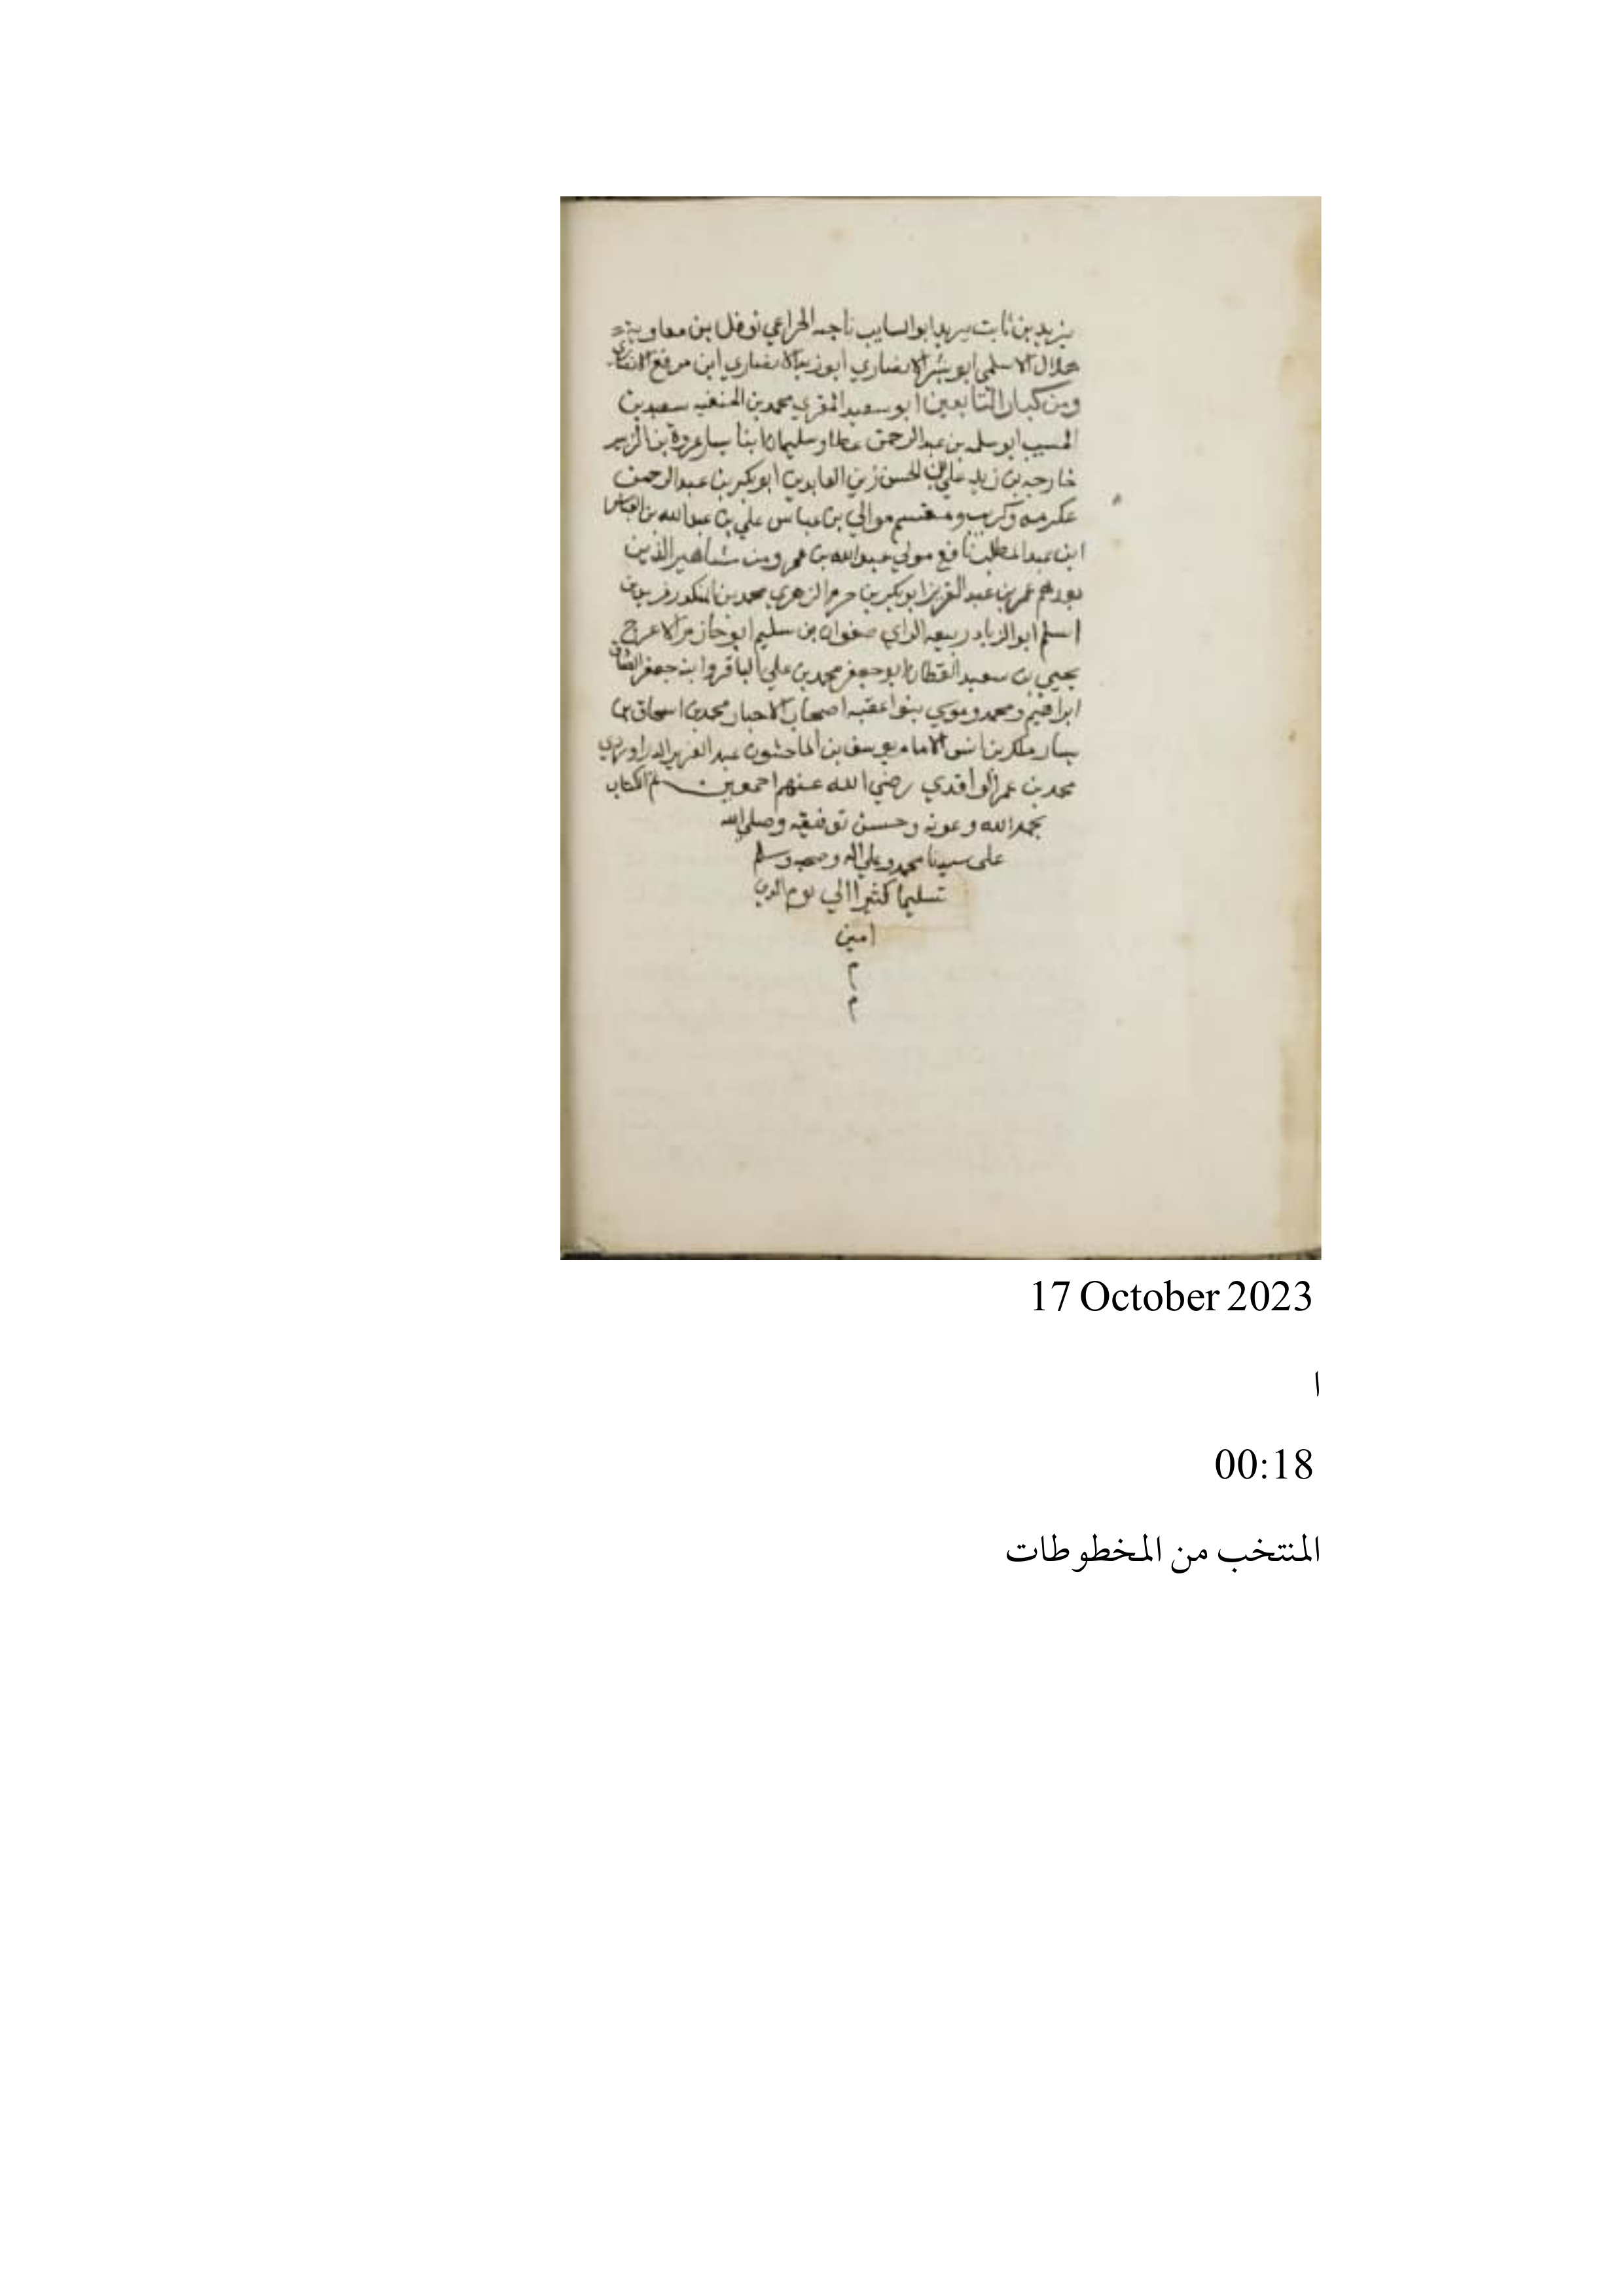 يزيد بن ثابت يزيد ابوالسايب ناجيه الخزاعي نوفل بن معاوية
هلال الاسلمي ابو بشر الانصاري ابوزيد الانصاري ابن مرفع الانصاري
ومن كبار التابعين ابو سعيد المقري محمد بن الحنفيه سعيد بن
المسيب ابو سلمه بن عبد الرحمن عطا وسليمان ابنا يسار عروة بن الزبير
خارجه بن زيد علي بن الحسن زين العابدين ابو بكر بن عبد الرحمن
عكرمه وكريب ومقسم موالي بن عباس علي بن عبد الله بن العباس
ابن عبد المطلب نافع مولي عبد الله بن عمر ومن مشاهير الذين
بعدهم عمر بن عبد العزيز ابو بكر بن حزم الزهري محمد بن المنكدر زيد بن
اسلم ابو الزناد ربيعه الراي صفوان بن سليم ابو حازم الاعرج
يحيي بن سعيد القطان ابو جعفر محمد بن علي الباقر وابنه جعفر الصادق
ابراهيم ومحمد وموسي بنوا عقبه اصحاب الاخبار محمد بن اسحاق بن
يسار ملك بن انس الامام يوسف بن الماجشون عبد العزيز الدراوردي
محمد بن عمر الواقدي رضي الله عنهم اجمعين تم الكتاب
بحمد الله وعونه وحسن توفيقه وصلي الله
على سيدنا محمد وعلي اله وصحبه وسلم
تسليما كثيرا الي يوم الدين
امين
م
م
17 October 2023
ا
00:18
المنتخب من المخطوطات